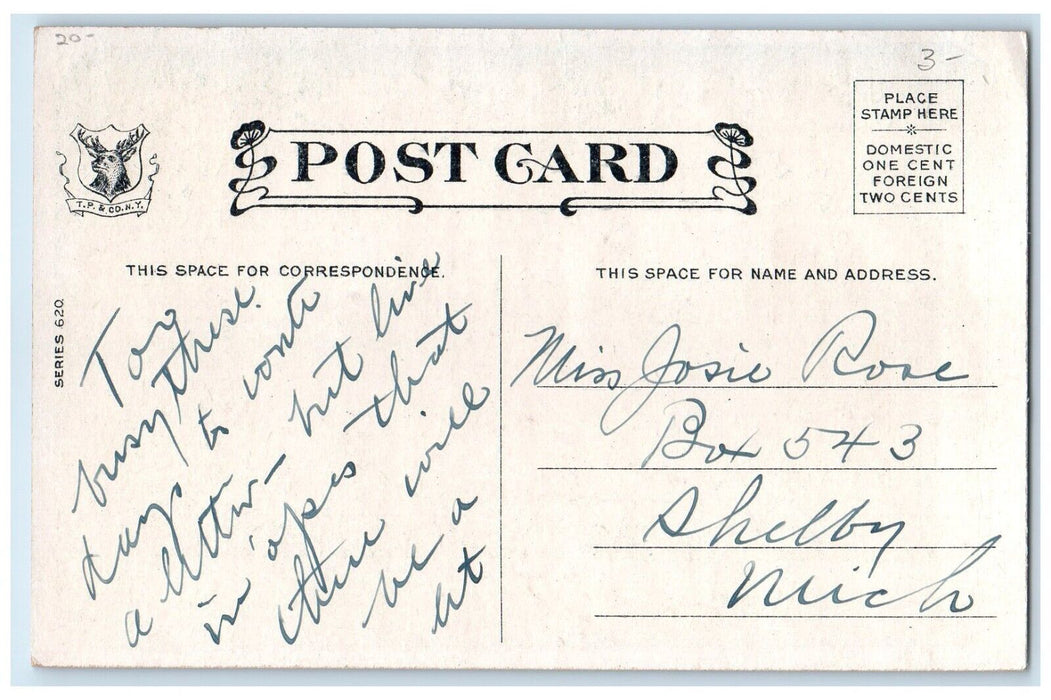 20-
3-
PLACE
STAMP HERE
DOMESTIC
ONE CENT
FOREIGN
TWO CENTS
POST CARD
T.P. & CO. N.Y.
THIS SPACE FOR CORRESPONDENCE.
THIS SPACE FOR NAME AND ADDRESS.
SERIES 620
Too
busy these
days to write
a letter - but live
in 'opes that
there will
be a
Miss Josie Rose
Box 543
Shelby
Mich